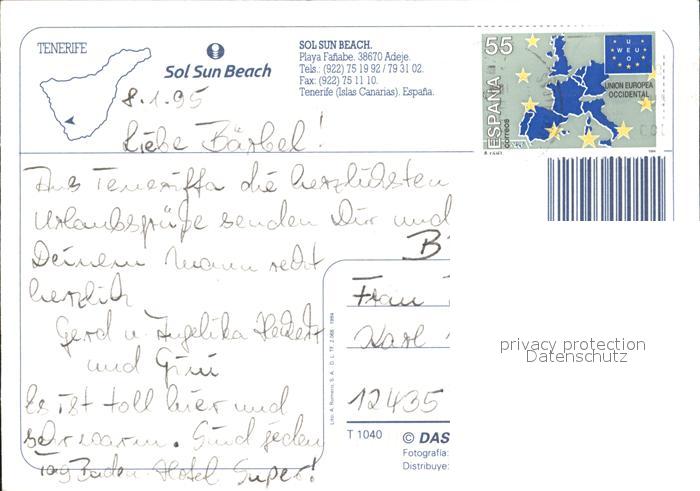 TENERIFE
Sol Sun Beach
SOL SUN BEACH.
Playa Fañabe. 38670 Adeje.
Tels.: (922) 75 19 92 / 79 31 02.
Fax: (922) 75 11 10.
Tenerife (Islas Canarias). España.
55
ESPAÑA
correos
U
W E U
O
UNION EUROPEA
OCCIDENTAL
8.1.95
Liebe Bärbel!
Aus Teneriffa die herzlichsten
Urlaubsgrüße senden Dir und
Deinem Mann recht
herzlich
Gerd u. Angelika
und Gini
Es ist toll hier und
sehr warm. Sind jeden
Tag Baden. Hotel Super!
B
Frau
Karl
12435
Lito. A. Romero, S. A. D. L. TF. 2.068 - 1994
T 1040
© DAS
Fotografía:
Distribuye:
privacy protection
Datenschutz